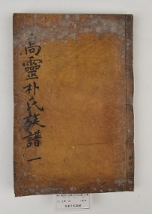 高靈朴氏族譜 一